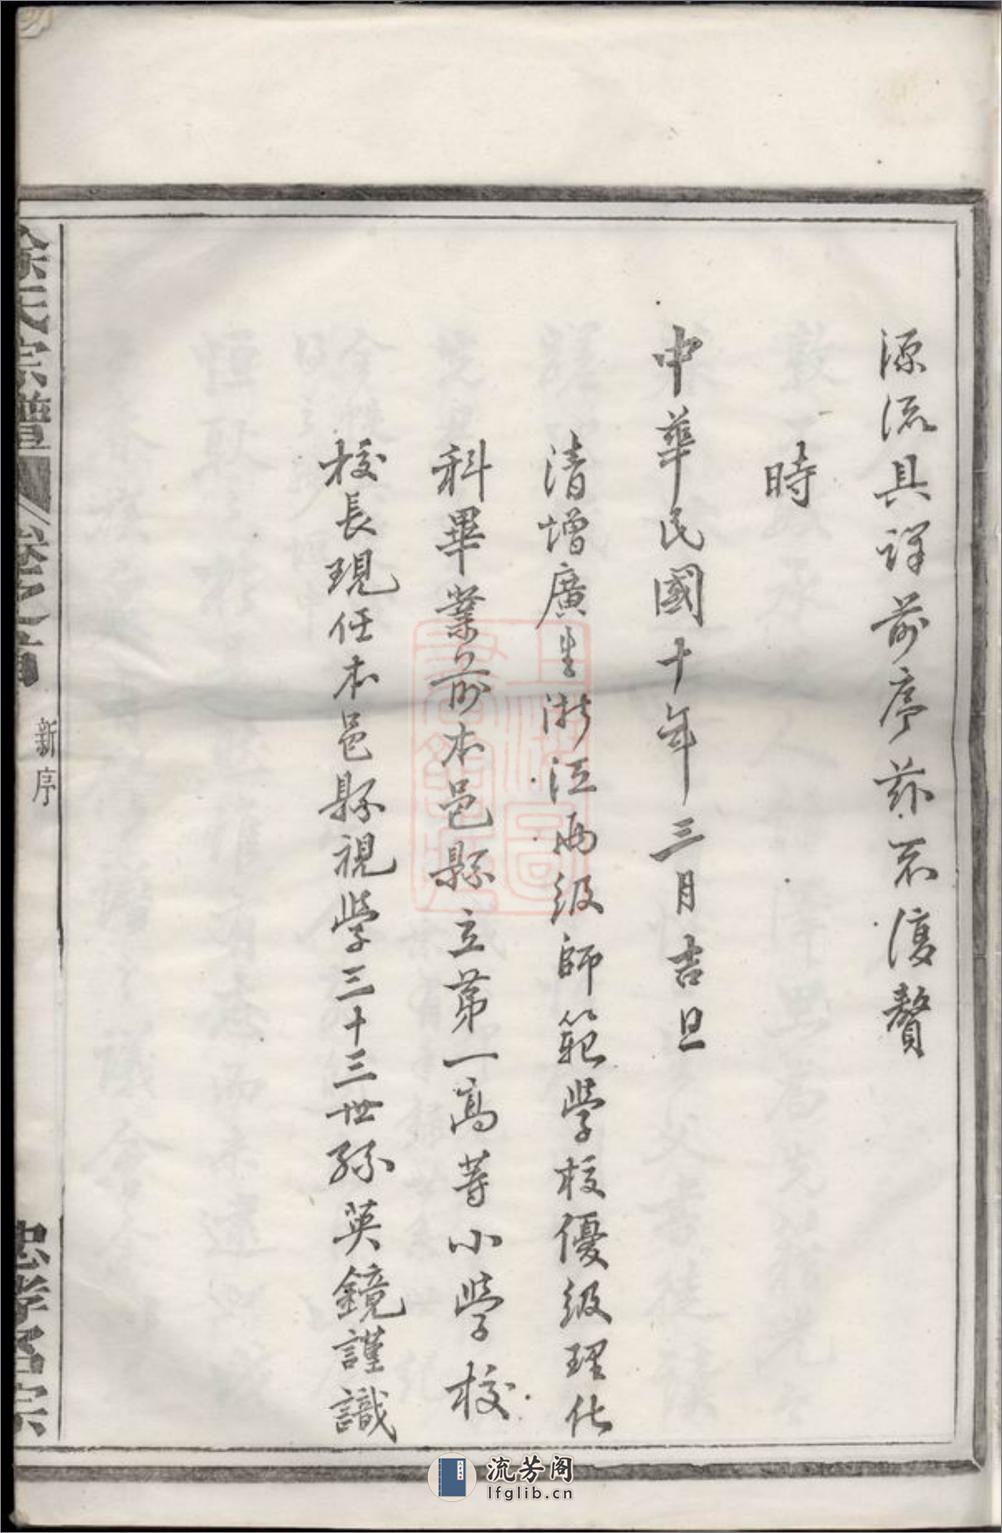 源流具詳前序茲不復贅
時
中華民國十年三月吉旦
清增廣生浙江兩級師範學校優級理化
科畢業前本邑縣立第一高等小學校
校長現任本邑縣視學三十三世孫英鏡謹識
徐氏宗譜
卷之首
新序
忠孝名宗
流芳阁
lfglib.cn